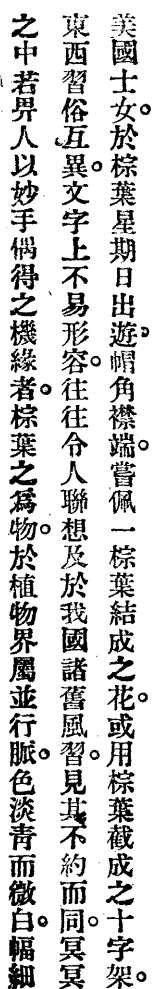 美國士女。於棕葉星期日出遊。帽角襟端。嘗佩一棕葉結成之花。或用棕葉截成之十字架。
東西習俗互異。文字上不易形容。往往令人聯想及於我國諸舊風習。見其不約而同。冥冥
之中若畀人以妙手偶得之機緣者。棕葉之爲物。於植物界屬並行脈。色淡青而微白。幅細